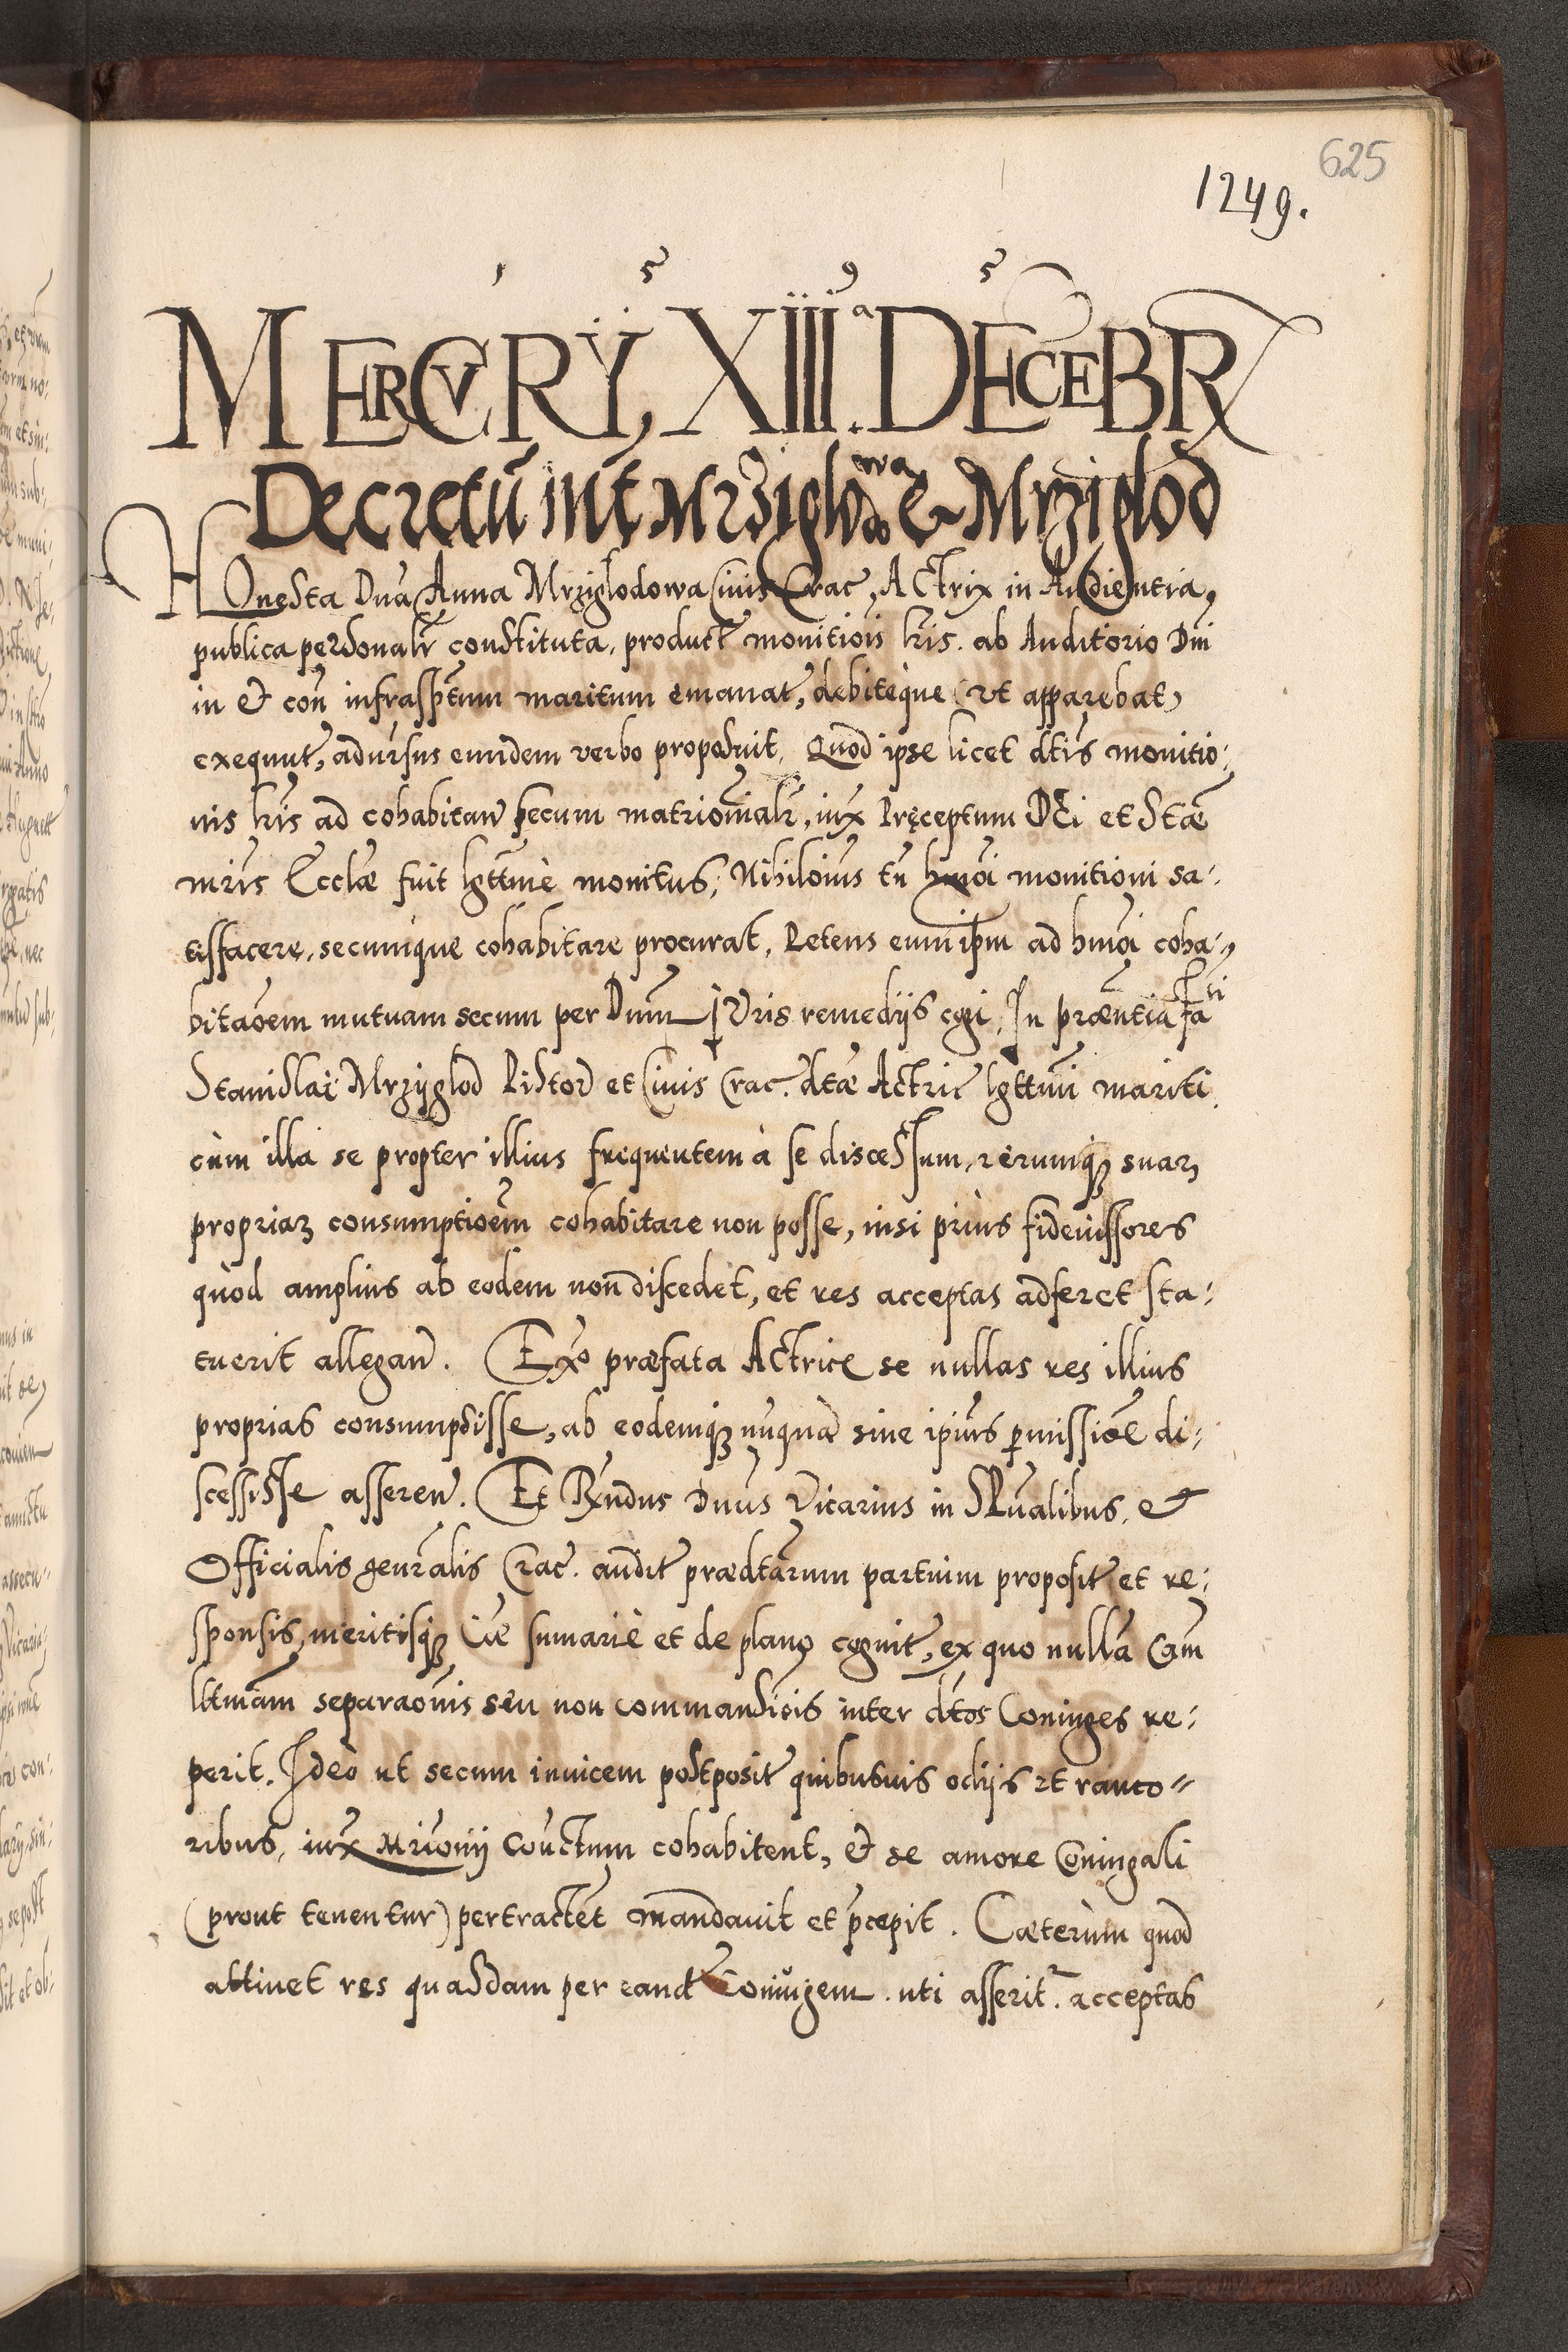 625
1249.
1 5 9 5
MERCVRY, XIII.a DECEBR
Decretū int Mrziglodowa & Mrziglod
HOnesta Dna Anna Mrziglodowa Ciuis Crac, Actrix in Audientia,
publica personalr constituta, product monitiois lris. ab Auditorio Dni
in & con infrasptum maritum emanat, debiteque (vt apparebat)
exequut, aduersus eundem verbo proposuit, Quod ipse licet dtis monitio:
nis lris ad cohabitan secum matrionialr, iux Pręceptum DEi et Stæ
mris Ecclæ fuit lgttmè monitus; Nihiloius tn hmoi monitioni sa:
tisfacere, secumque cohabitare procurat, Petens eum ipm ad hmoi coha:
bitaoem mutuam secum per Dnm Juris remedijs cogi, In præntia
Stanislai Mrzyglod Pistor et Ciuis Crac. dtæ Actric lgttmi mariti
cùm illa se propter illius frequentem à se discessum, rerumq3 suar
propriar consumptioem cohabitare non posse, nisi priùs fideiussores
quòd amplius ab eodem non discedet, et res acceptas adferet sta:
tuerit allegan. Exo præfata Actrice se nullas res illius
proprias consumpsisse, ab eodemq3 nuquā sine ipius pmissioe di:
scessisse asseren. Et Rndus Dnus Vicarius in SPualibus, &
Officialis genralis Crac. audit prædtarum partium proposit et re:
sponsis, meritisq3 Cae sumariè et de plano cognit, ex quo nullā Cam
ltmam separaonis seu non commansiois inter dtos Coniuges re:
perit. Ideò ut secum inuicem postposit quibusuis odijs et ranco:
ribus, iux Mrionij Couctum cohabitent, & se amore Coniugali
(prout tenentur) pertractet mandauit et pcepit. Cæterùm quod
attinet res quasdam per eand Coniugem uti asserit. acceptas